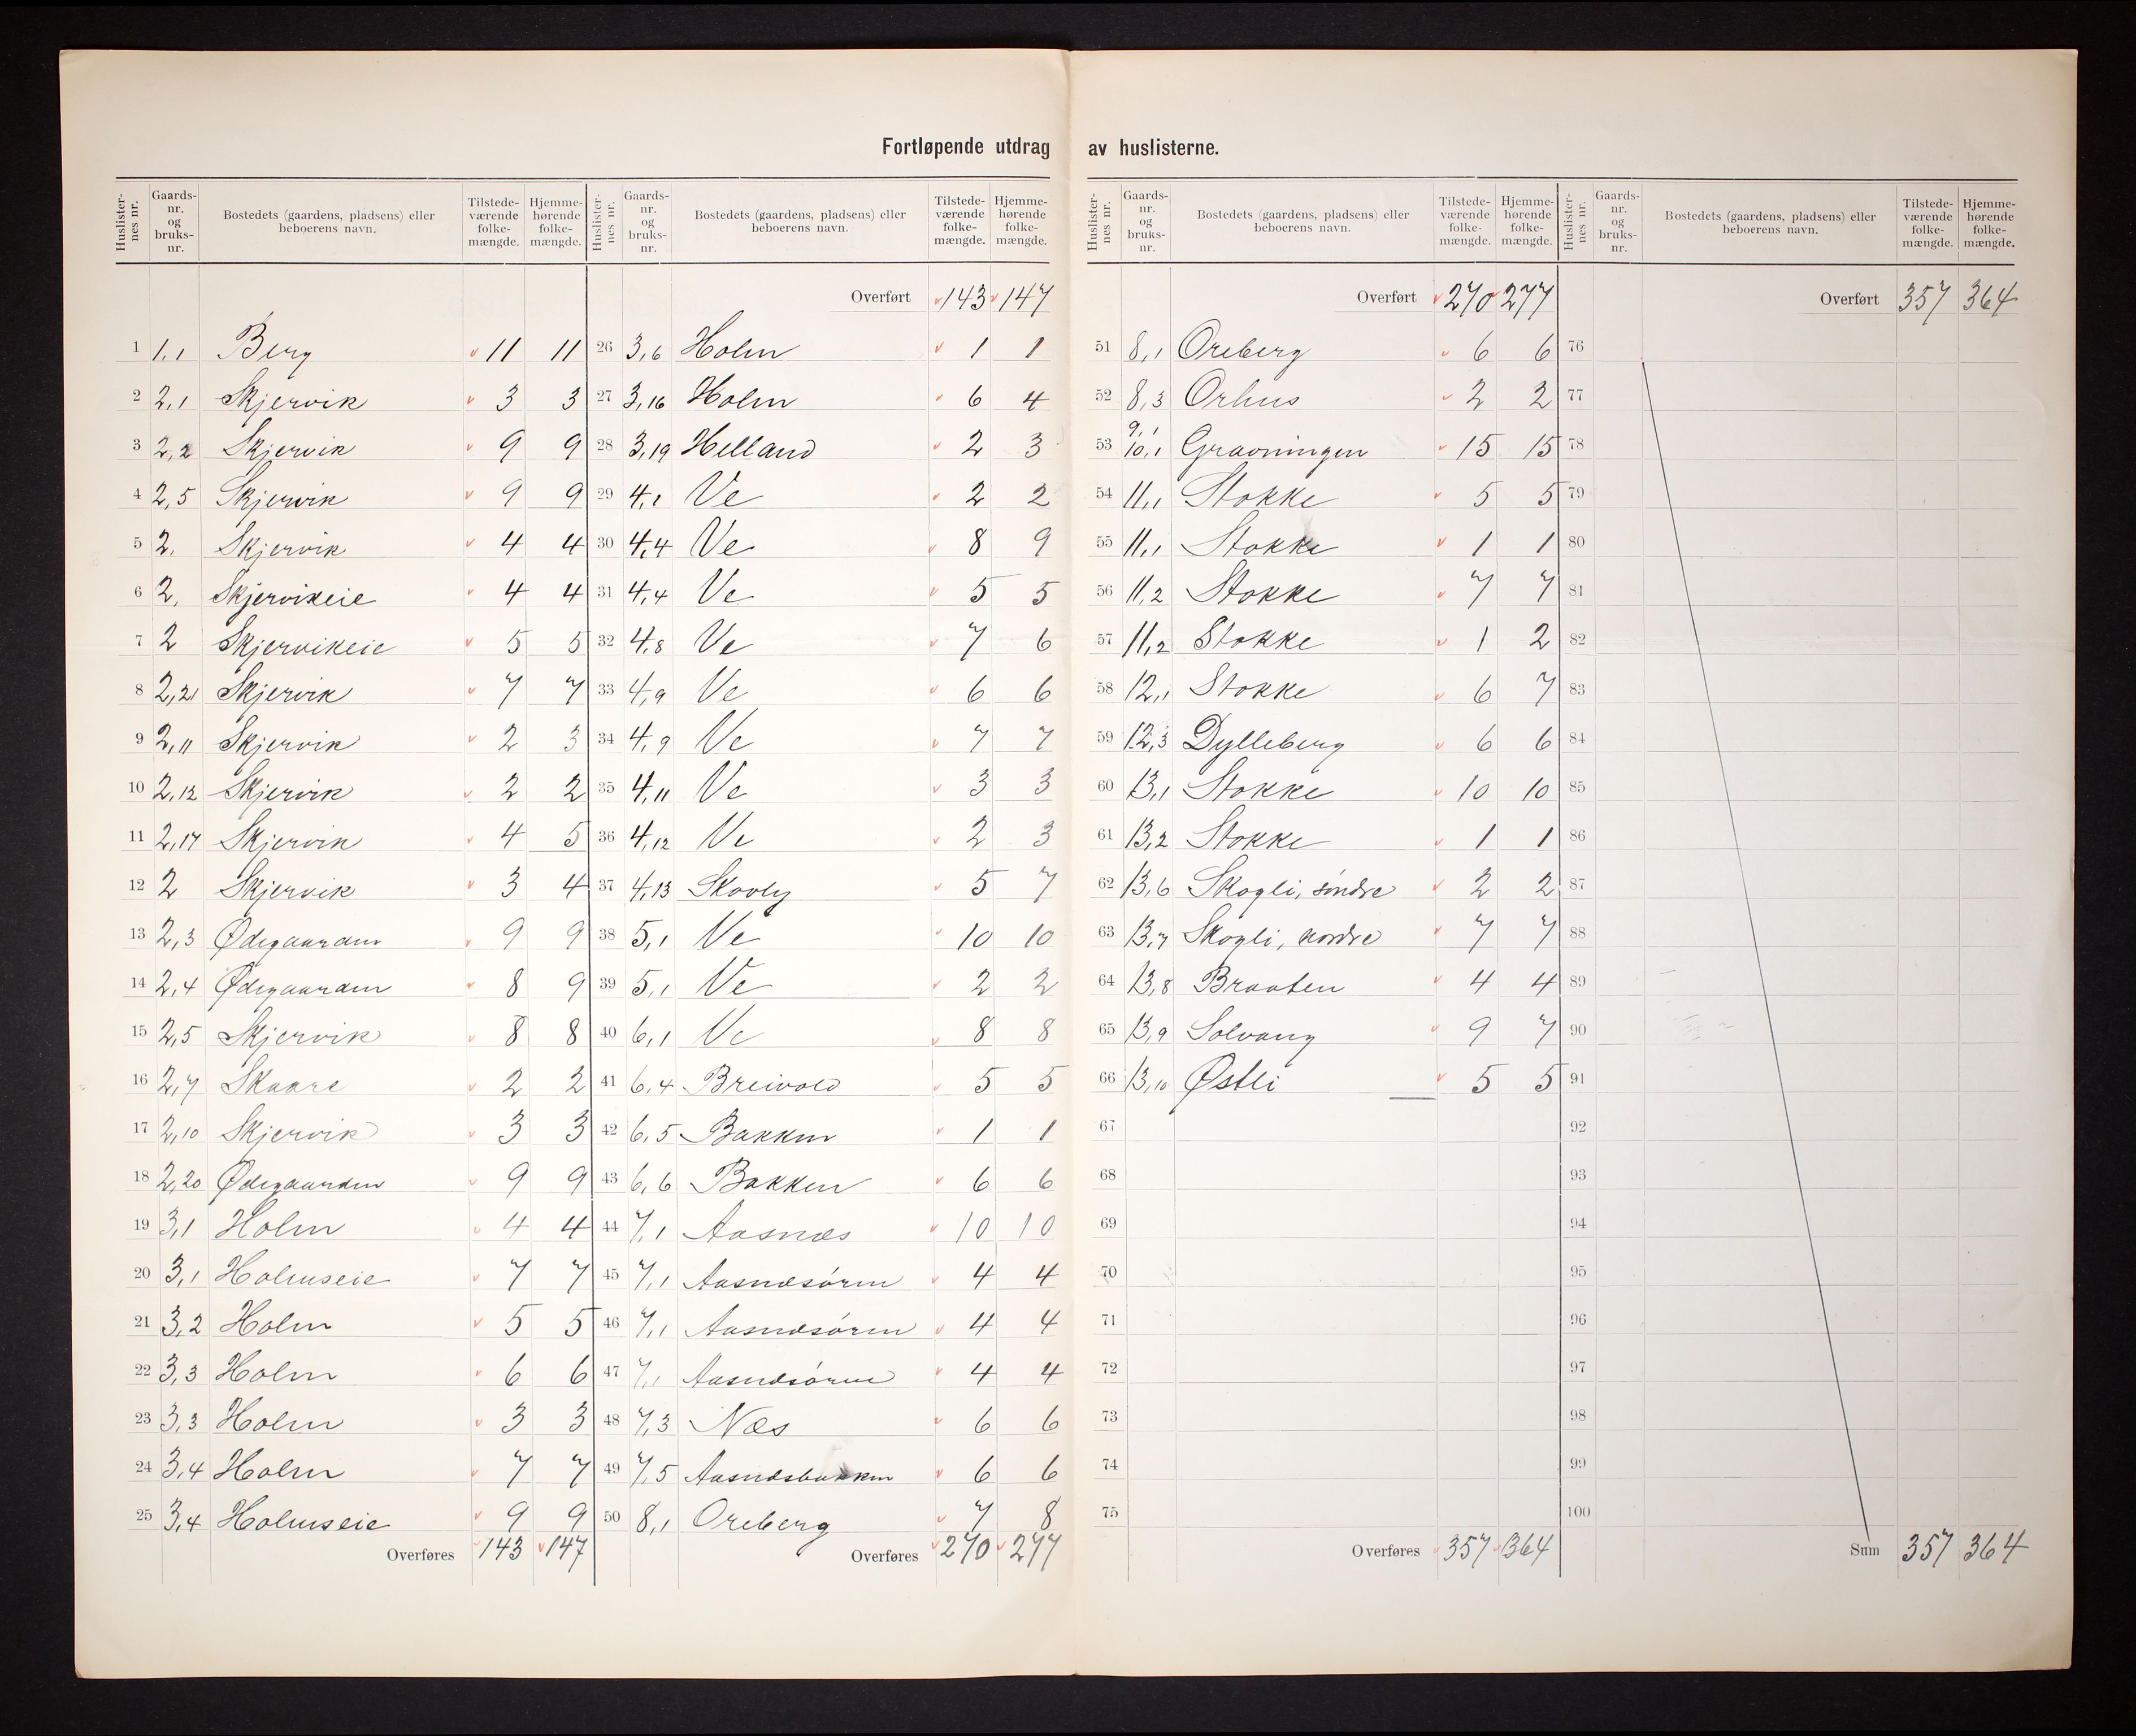 Fortløpende utdrag av huslisterne.
Huslister-nes nr. Gaards-nr. og bruks-nr. Bostedets (gaardens, pladsens) eller beboerens navn. Tilstede-værende folke-mængde. Hjemme-hørende folke-mængde.
1 1,1 Berg 11 11
2 2,1 Skjervik 3 3
3 2,2 Skjervik 9 9
4 2,5 Skjervik 9 9
5 2, Skjervik 4 4
6 2, Skjervikeie 4 4
7 2 Skjervikeie 5 5
8 2,21 Skjervik 7 7
9 2,11 Skjervik 2 3
10 2,12 Skjervik 2 2
11 2,17 Skjervik 4 5
12 2 Skjervik 3 4
13 2,3 Ødegaarden 9 9
14 2,4 Ødegaarden 8 9
15 2,5 Skjervik 8 8
16 2,7 Skaare 2 2
17 2,10 Skjervik 3 3
18 2,20 Ødegaarden 9 9
19 3,1 Holm 4 4
20 3,1 Holmseie 7 7
21 3,2 Holm 5 5
22 3,3 Holm 6 6
23 3,3 Holm 3 3
24 3,4 Holm 7 7
25 3,4 Holmseie 9 9
Overføres 143 147
Huslister-nes nr. Gaards-nr. og bruks-nr. Bostedets (gaardens, pladsens) eller beboerens navn. Tilstede-værende folke-mængde. Hjemme-hørende folke-mængde.
Overført 143 147
26 3,6 Holm 1 1
27 3,16 Holm 6 4
28 3,19 Helland 2 3
29 4,1 Ve 2 2
30 4,4 Ve 8 9
31 4,4 Ve 5 5
32 4,8 Ve 7 6
33 4,9 Ve 6 6
34 4,9 Ve 7 7
35 4,11 Ve 3 3
36 4,12 Ve 2 3
37 4,13 Skovly 5 7
38 5,1 Ve 10 10
39 5,1 Ve 2 2
40 6,1 Ve 8 8
41 6,4 Breivold 5 5
42 6,5 Bakken 1 1
43 6,6 Bakken 6 6
44 7,1 Aasnæs 10 10
45 7,1 Aasnæsøren 4 4
46 7,1 Aasnæsøren 4 4
47 7,1 Aasnæsøren 4 4
48 7,3 Næs 6 6
49 7,5 Aasnæsbakken 6 6
50 8,1 Oreberg 7 8
Overføres 270 277
Huslister-nes nr. Gaards-nr. og bruks-nr. Bostedets (gaardens, pladsens) eller beboerens navn. Tilstede-værende folke-mængde. Hjemme-hørende folke-mængde.
Overført 270 277
51 8,1 Oreberg 6 6
52 8,3 Orhus 2 2
53 9,1 10,1 Gravningen 15 15
54 11,1 Stokke 5 5
55 11,1 Stokke 1 1
56 11,2 Stokke 7 7
57 11,2 Stokke 1 2
58 12,1 Stokke 6 7
59 12,3 Dylleberg 6 6
60 13,1 Stokke 10 10
61 13,2 Stokke 1 1
62 13,6 Skogli, søndre 2 2
63 13,7 Skogli, nordre 7 7
64 13,8 Braaten 4 4
65 13,9 Solvang 9 7
66 13,10 Østli 5 5
67
68
69
70
71
72
73
74
75
Overføres 357 364
Huslister-nes nr. Gaards-nr. og bruks-nr. Bostedets (gaardens, pladsens) eller beboerens navn. Tilstede-værende folke-mængde. Hjemme-hørende folke-mængde.
Overført 357 364
76
77
78
79
80
81
82
83
84
85
86
87
88
89
90
91
92
93
94
95
96
97
98
99
100
Sum 357 364